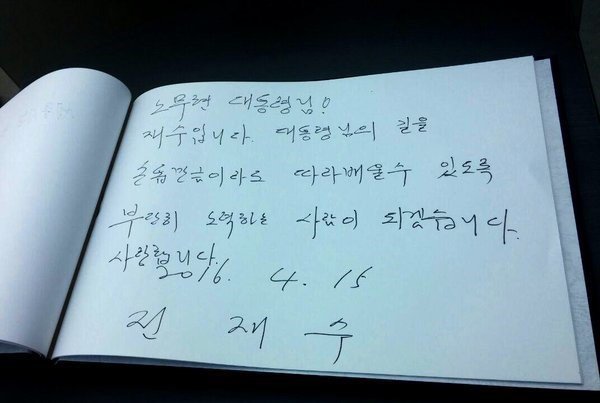 노무현 대통령님!
재수입니다. 대통령님의 길을
손톱깐큼이라도 따라배울수 있도록
부단히 노력하는 사람이 되겠습니다.
사랑합니다.
2016. 4. 15
전 재 수